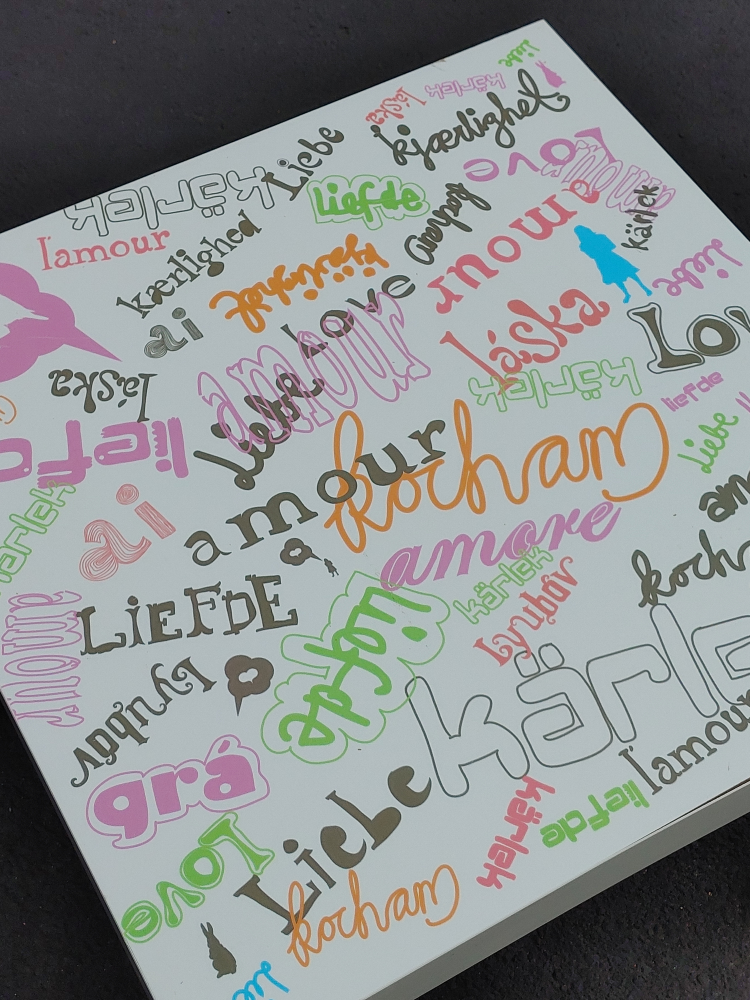 liebe
kärlek
láska
kjærlighet
Liebe
Love
amour
kärlek
liefde
kocham
kärlek
l'amour
kærlighed
amour
liebe
kärlighet
Love
ai
láska
Love
amour
láska
kärlek
liefde
Liebe
liefde
kocham
Liebe
amour
kärlek
ai
amore
kärlek
LiEFDE
liefde
Lyubov
koch
amour
Lyubov
kärle
l'amour
grá
Liebe
kärlek
liefde
Love
kocham